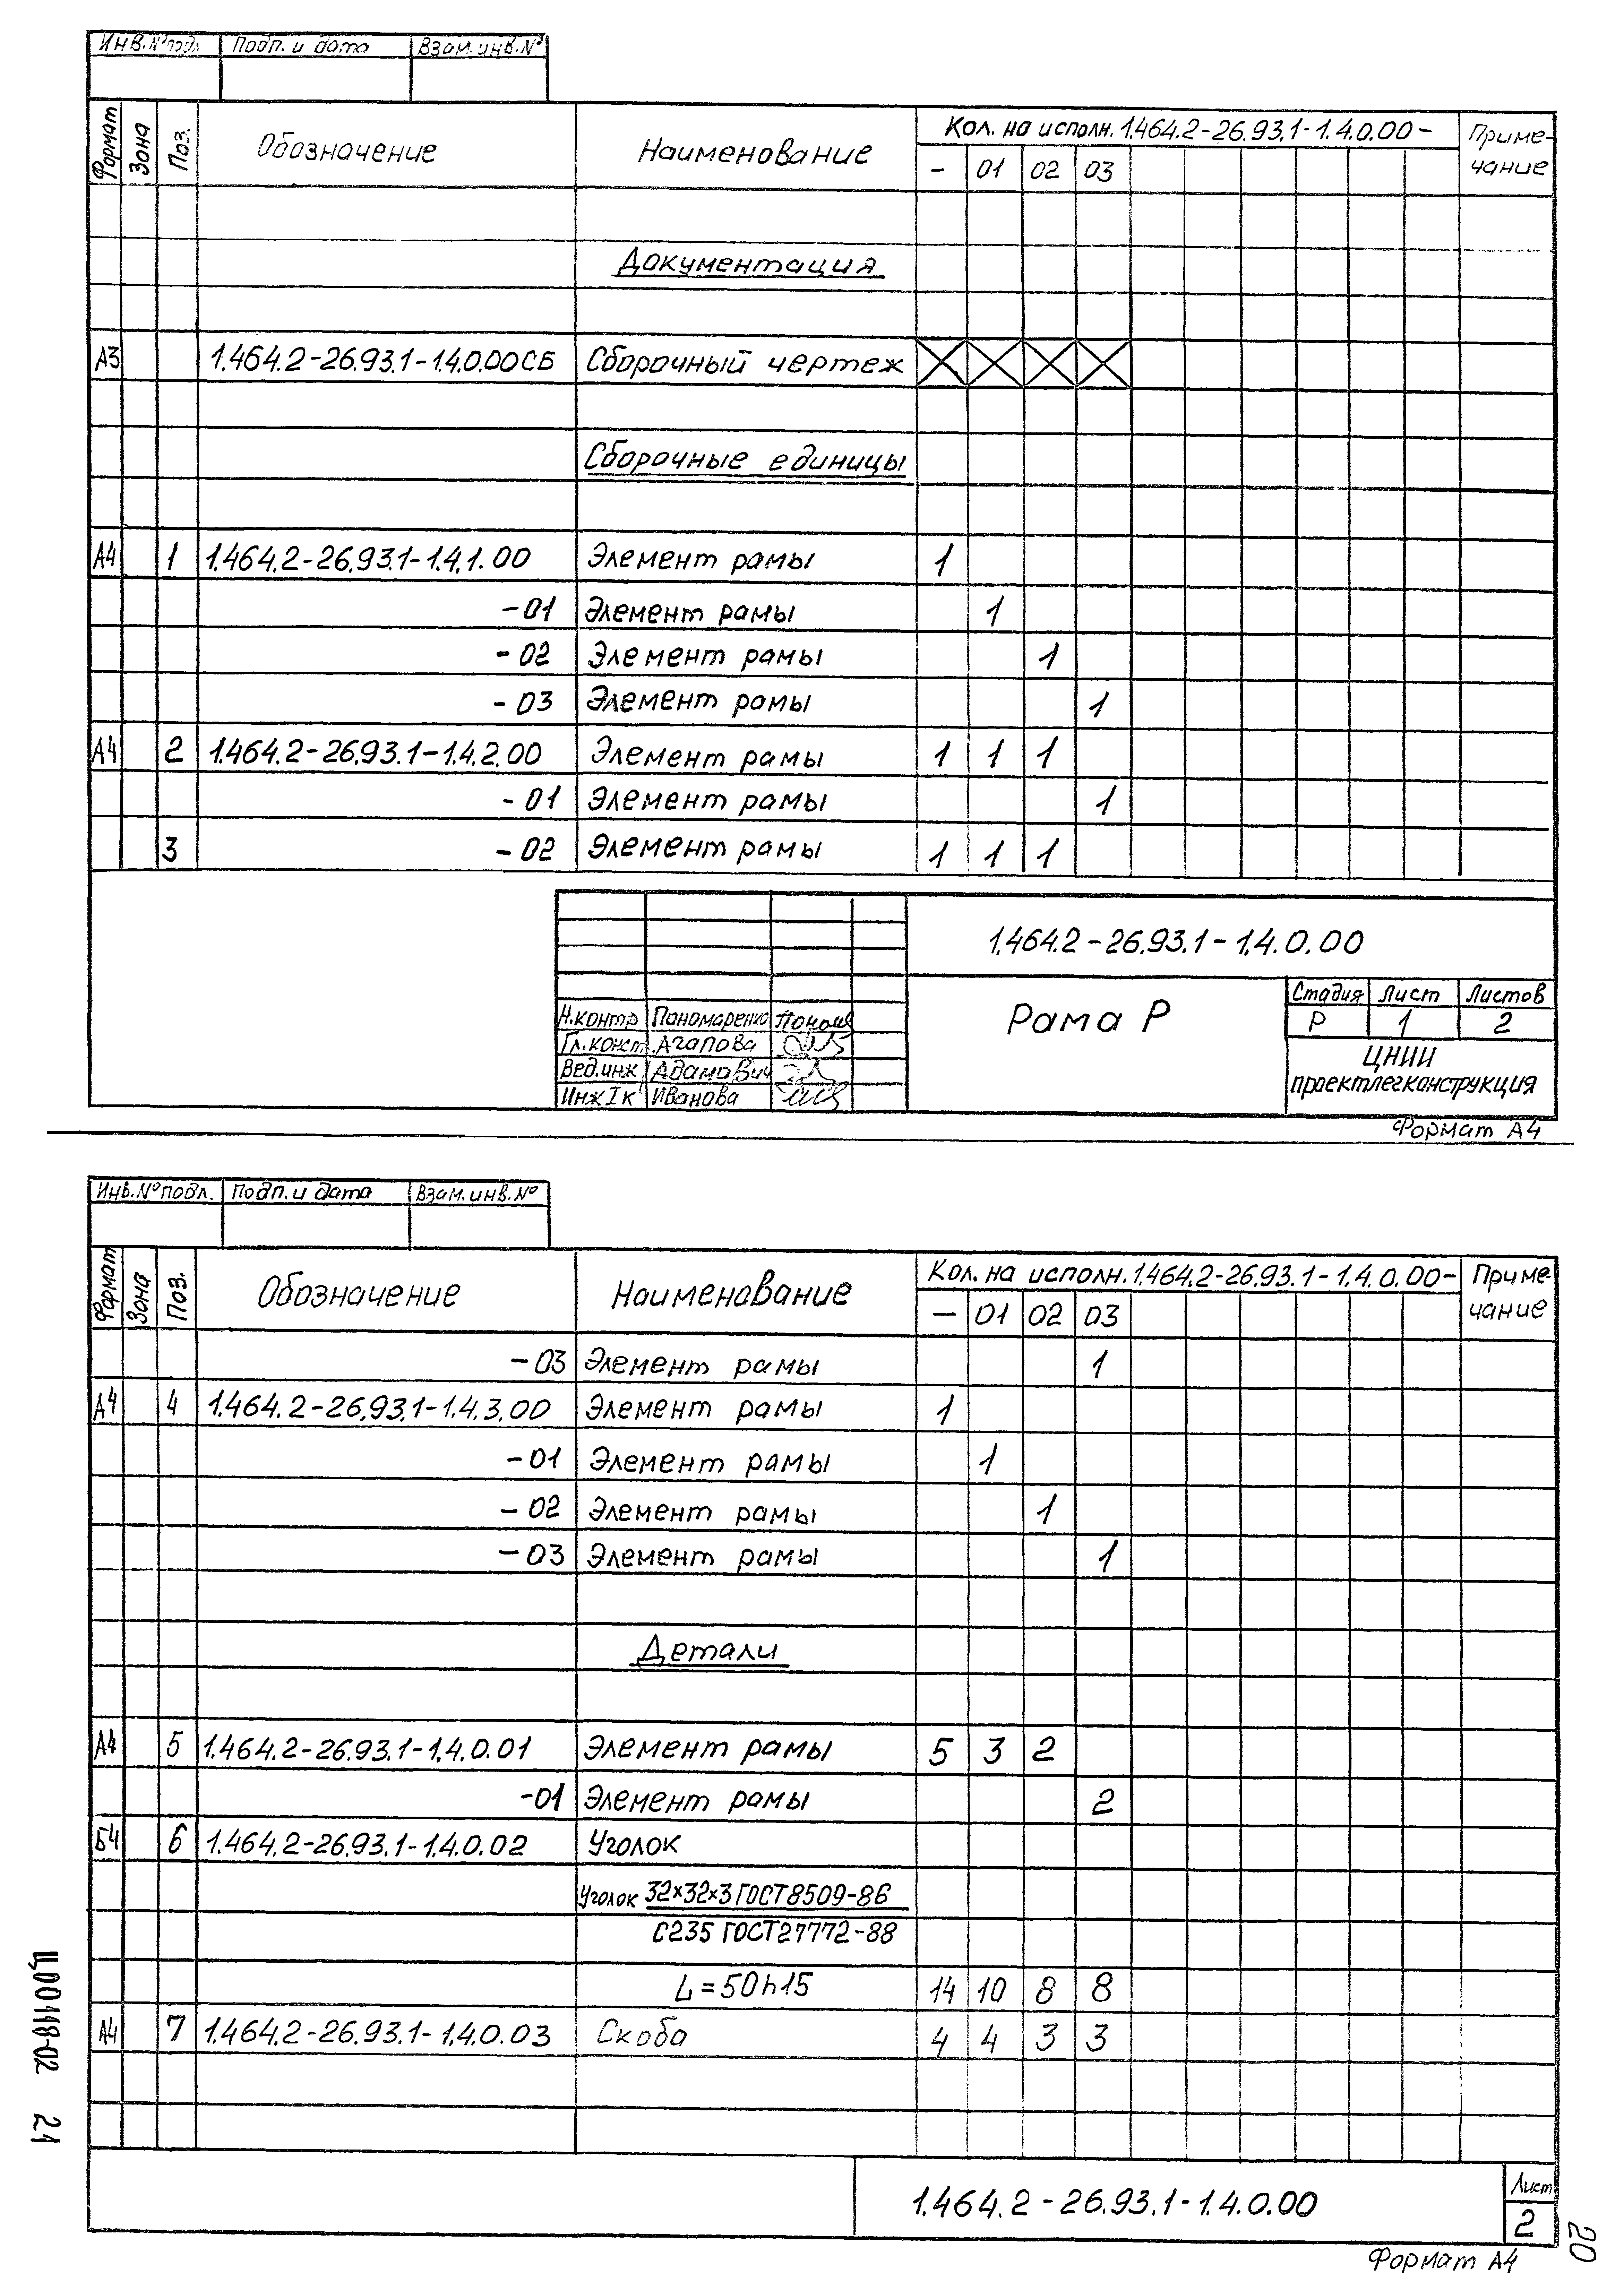 Инв.№подл. Подп. и дата Взам.инв.№
Формат Зона Поз. Обозначение Наименование Кол. на исполн. 1.464.2-26.93.1-1.4.0.00- Приме-
чание
- 01 02 03
Документация
А3 1.464.2-26.93.1-1.4.0.00СБ Сборочный чертеж
Сборочные единицы
А4 1 1.464.2-26.93.1-1.4.1.00 Элемент рамы 1
-01 Элемент рамы 1
-02 Элемент рамы 1
-03 Элемент рамы 1
А4 2 1.464.2-26.93.1-1.4.2.00 Элемент рамы 1 1 1
-01 Элемент рамы 1
3 -02 Элемент рамы 1 1 1
1.464.2-26.93.1-1.4.0.00
Рама Р
Стадия Лист Листов
Р 1 2
Н.контр Пономаренко
Гл.конст. Агапова
Вед.инж Адамович
Инж I к Иванова
ЦНИИ
проектлегконструкция
Формат А4
Инв.№подл. Подп. и дата Взам.инв.№
Формат Зона Поз. Обозначение Наименование Кол. на исполн. 1.464.2-26.93.1-1.4.0.00- Приме-
чание
- 01 02 03
-03 Элемент рамы 1
А4 4 1.464.2-26.93.1-1.4.3.00 Элемент рамы 1
-01 Элемент рамы 1
-02 Элемент рамы 1
-03 Элемент рамы 1
Детали
А4 5 1.464.2-26.93.1-1.4.0.01 Элемент рамы 5 3 2
-01 Элемент рамы 2
Б4 6 1.464.2-26.93.1-1.4.0.02 Уголок
Уголок 32×32×3 ГОСТ 8509-86
С235 ГОСТ 27772-88
L=50h15 14 10 8 8
А4 7 1.464.2-26.93.1-1.4.0.03 Скоба 4 4 3 3
1.464.2-26.93.1-1.4.0.00
Лист
2
Формат А4
Ц00148-02 21
20